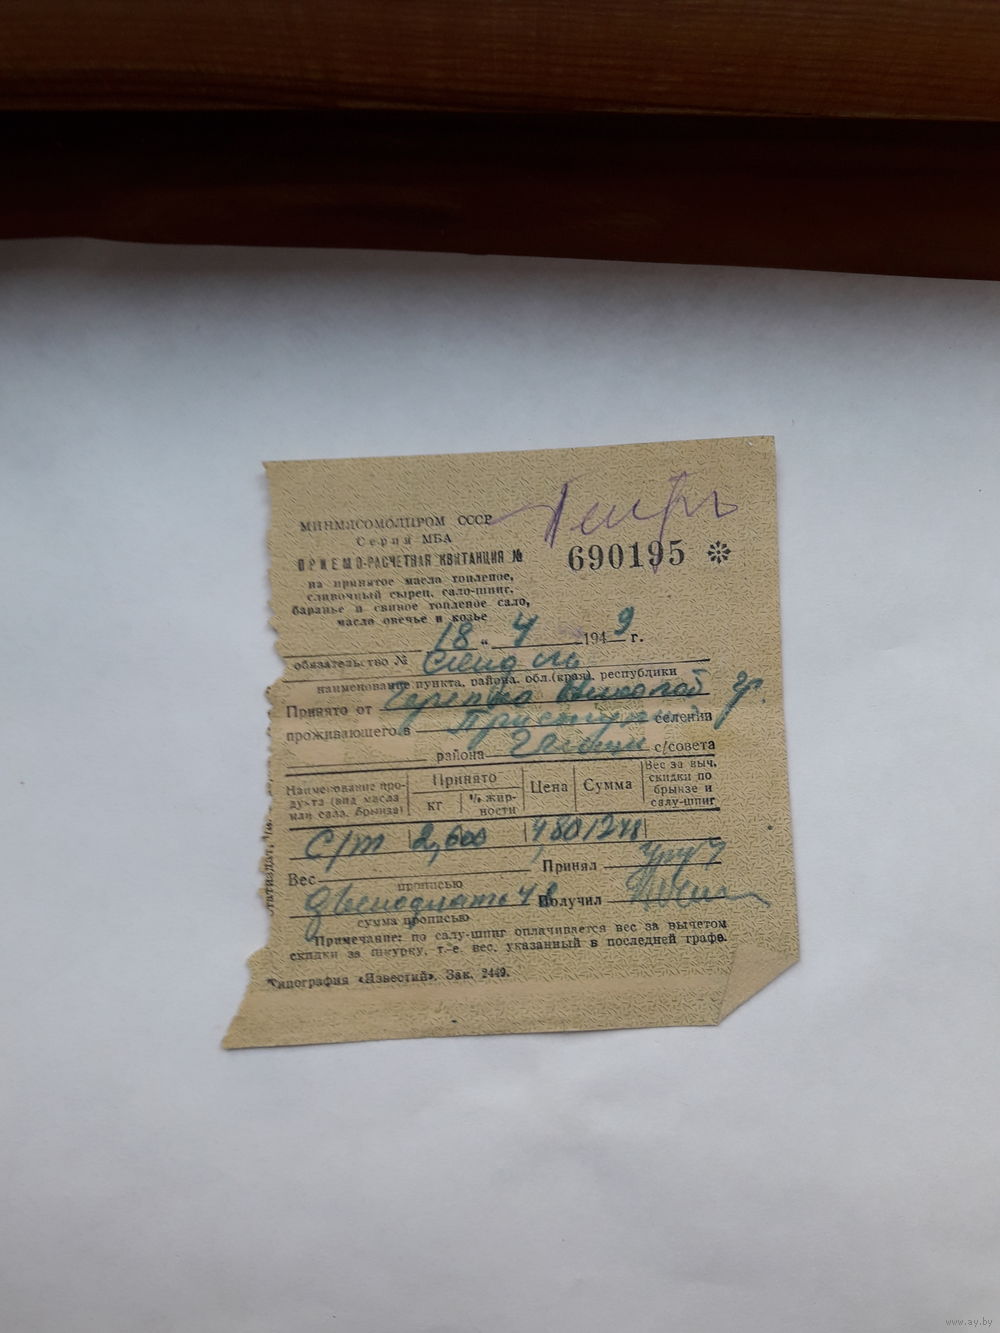 МИНМЯСОМОЛПРОМ СССР
Серия МБА
ПРИЕМО-РАСЧЕТНАЯ КВИТАНЦИЯ №
690195
на принятое масла топленое,
сливочный сырец, сало-шпиг,
баранье и свиное топленое сало,
масло овечье и козье
18 „ 4 1949 г.
обязательство №
наименование пункта, района, обл.(края), республики
Принято от Николай
проживающего в селении
района с/совета
Наименование про-
дукта (вид масла
или сала, брынза)
Принято
кг
% жир-
ности
Цена
Сумма
Вес за выч.
скидки по
брынзе и
салу-шпиг
С/т 2,600 480 1248
Вес Принял
прописью
Двенадцать 48 Получил
сумма прописью
Примечание: по салу-шпиг оплачивается вес за вычетом
скидки за шкурку, т.-е. вес, указанный в последней графе.
Типография «Известий». Зак. 2449.
www.ay.by